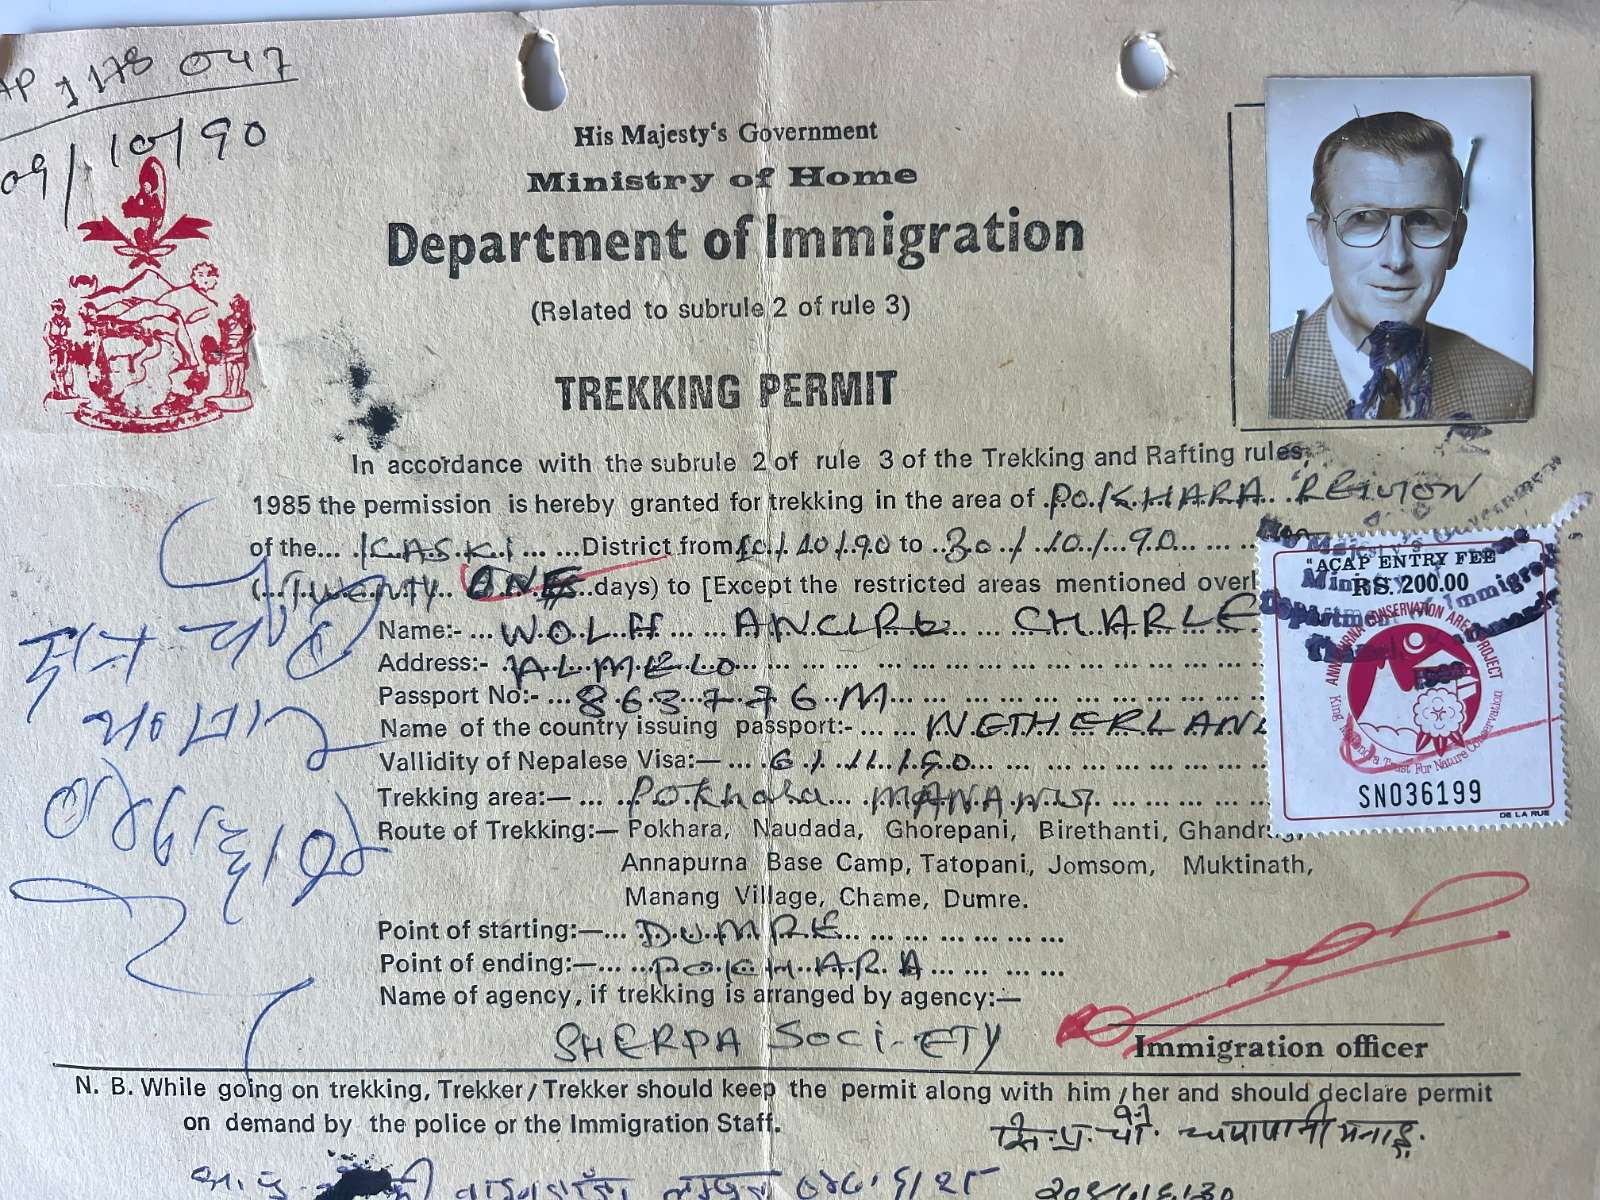 AP 1178 047
09/10/90
His Majesty's Government
Ministry of Home
Department of Immigration
(Related to subrule 2 of rule 3)
TREKKING PERMIT
In accordance with the subrule 2 of rule 3 of the Trekking and Rafting rules,
1985 the permission is hereby granted for trekking in the area of POKHARA REGION
of the... KASKI ... ...District from 10/10/90 to ..30/10/90... ...
(..TWENTY ONE..days) to [Except the restricted areas mentioned overl
Name:- ... WOLFF ... ... ANDRE ... ... CHARLE
Address:- ALMELO
Passport No:- ...863776M
Name of the country issuing passport:- ... NETHERLAN
Vallidity of Nepalese Visa:— ... 6/11/90
Trekking area:— ... Pokhara... MANANG
Route of Trekking:— Pokhara, Naudada, Ghorepani, Birethanti, Ghandr
Annapurna Base Camp, Tatopani, Jomsom, Muktinath,
Manang Village, Chame, Dumre.
Point of starting:—... DUMRE
Point of ending:—... POKHARA
Name of agency, if trekking is arranged by agency:—
SHERPA SOCIETY
Immigration officer
N. B. While going on trekking, Trekker/Trekker should keep the permit along with him/her and should declare permit
on demand by the police or the Immigration Staff.
"ACAP ENTRY FEE
RS. 200.00
ANNAPURNA CONSERVATION AREA PROJECT
King Mahendra Trust For Nature Conservation
SN036199
DE LA RUE